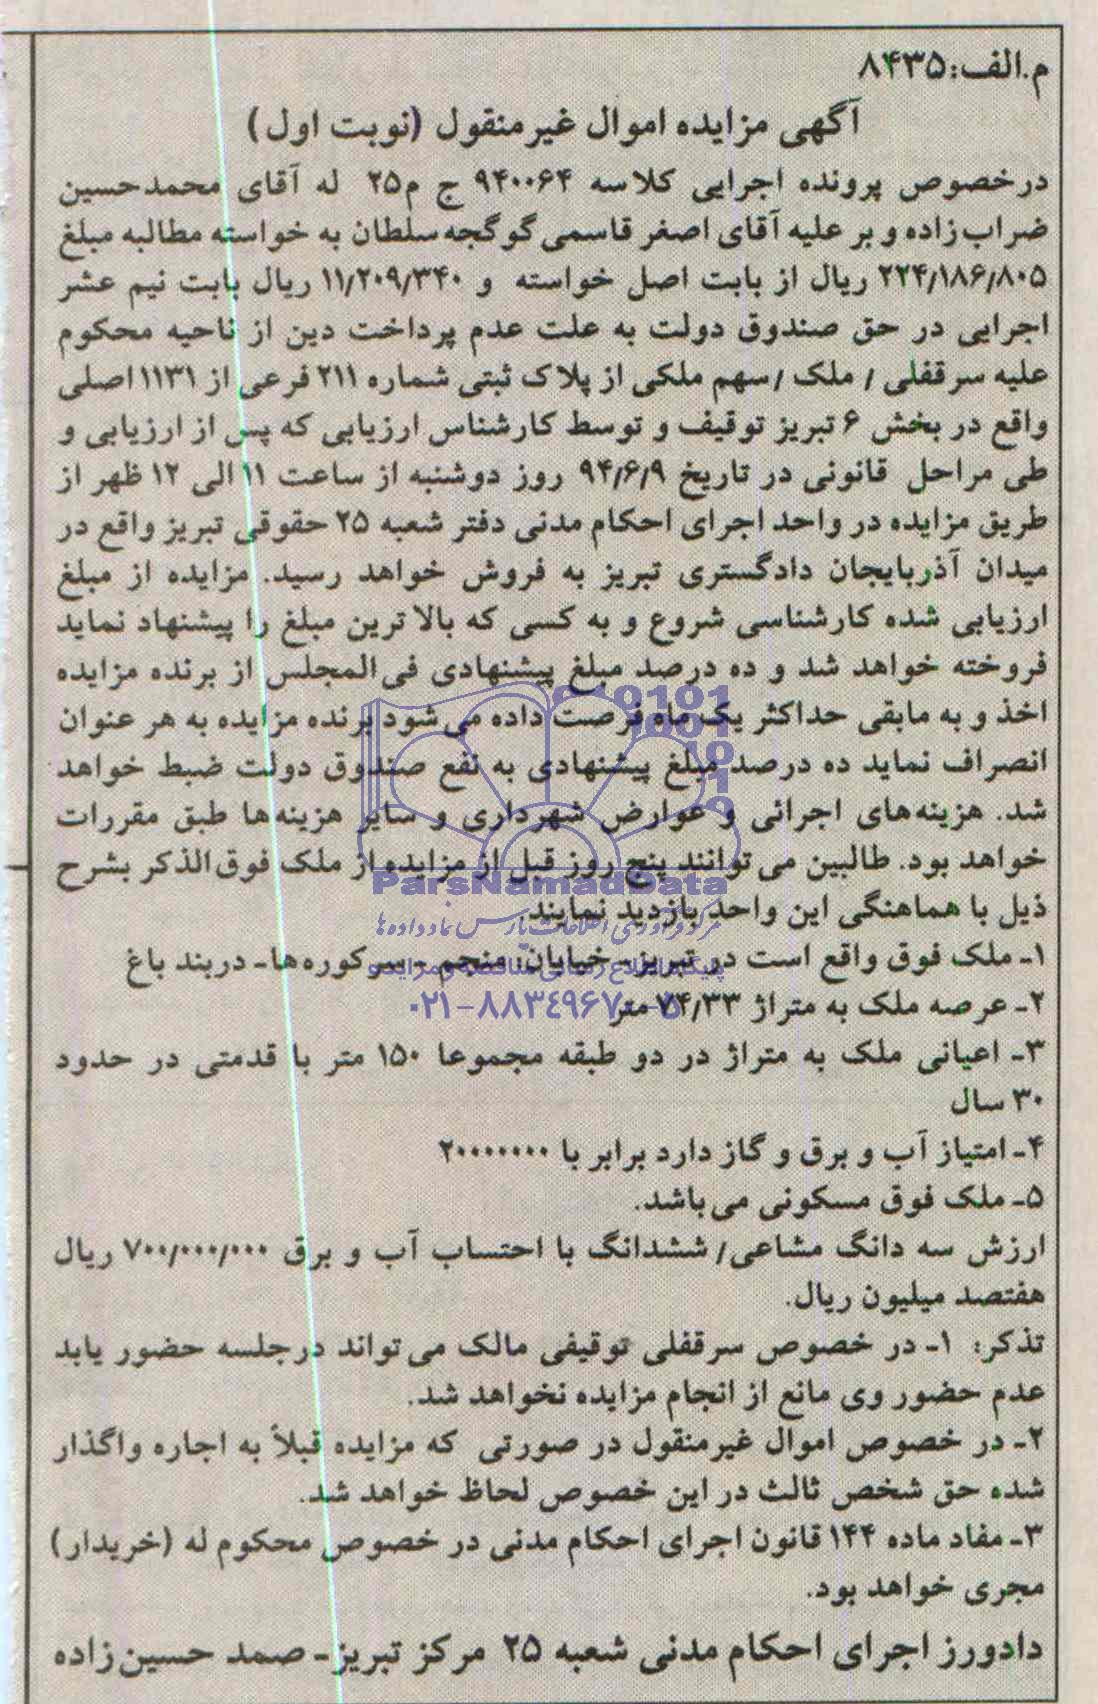 م.الف:۸۴۳۵
آگهی مزایده اموال غیرمنقول (نوبت اول)
درخصوص پرونده اجرایی کلاسه ۹۴۰۰۶۴ ج م۲۵ له آقای محمدحسین
ضراب‌زاده و بر علیه آقای اصغر قاسمی گوگجه‌سلطان به خواسته مطالبه مبلغ
۲۲۴/۱۸۶/۸۰۵ ریال از بابت اصل خواسته و ۱۱/۲۰۹/۳۴۰ ریال بابت نیم عشر
اجرایی در حق صندوق دولت به علت عدم پرداخت دین از ناحیه محکوم
علیه سرقفلی / ملک /سهم ملکی از پلاک ثبتی شماره ۲۱۱ فرعی از ۱۱۳۱ اصلی
واقع در بخش ۶ تبریز توقیف و توسط کارشناس ارزیابی که پس از ارزیابی و
طی مراحل قانونی در تاریخ ۹۴/۶/۹ روز دوشنبه از ساعت ۱۱ الی ۱۲ ظهر از
طریق مزایده در واحد اجرای احکام مدنی دفتر شعبه ۲۵ حقوقی تبریز واقع در
میدان آذربایجان دادگستری تبریز به فروش خواهد رسید. مزایده از مبلغ
ارزیابی شده کارشناسی شروع و به کسی که بالاترین مبلغ را پیشنهاد نماید
فروخته خواهد شد و ده درصد مبلغ پیشنهادی فی‌المجلس از برنده مزایده
اخذ و به مابقی حداکثر یک ماه فرصت داده می‌شود برنده مزایده به هر عنوان
انصراف نماید ده درصد مبلغ پیشنهادی به نفع صندوق دولت ضبط خواهد
شد. هزینه‌های اجرائی و عوارض شهرداری و سایر هزینه‌ها طبق مقررات
خواهد بود. طالبین می‌توانند پنج روز قبل از مزایده از ملک فوق‌الذکر بشرح
ParsNamadData
ذیل با هماهنگی این واحد بازدید نمایند.
مرکز فرآوری اطلاعات پارس نماد داده‌ها
۱ـ ملک فوق واقع است در تبریز ـ خیابان: منجم ـ سرکوره‌ها ـ دربند باغ
پایگاه اطلاع رسانی مناقصه و مزایده
۲ـ عرصه ملک به متراژ ۷۴/۳۳ متر
۰۲۱-۸۸۳۴۹۶۷۰-۵
۳ـ اعیانی ملک به متراژ در دو طبقه مجموعا ۱۵۰ متر با قدمتی در حدود
۳۰ سال
۴ـ امتیاز آب و برق و گاز دارد برابر با ۲۰۰۰۰۰۰۰
۵ـ ملک فوق مسکونی می‌باشد.
ارزش سه دانگ مشاعی/ ششدانگ با احتساب آب و برق ۷۰۰/۰۰۰/۰۰۰ ریال
هفتصد میلیون ریال.
تذکر: ۱ـ در خصوص سرقفلی توقیفی مالک می‌تواند درجلسه حضور یابد
عدم حضور وی مانع از انجام مزایده نخواهد شد.
۲ـ در خصوص اموال غیرمنقول در صورتی که مزایده قبلاً به اجاره واگذار
شده حق شخص ثالث در این خصوص لحاظ خواهد شد.
۳ـ مفاد ماده ۱۴۴ قانون اجرای احکام مدنی در خصوص محکوم له (خریدار)
مجری خواهد بود.
دادورز اجرای احکام مدنی شعبه ۲۵ مرکز تبریز ـ صمد حسین‌زاده